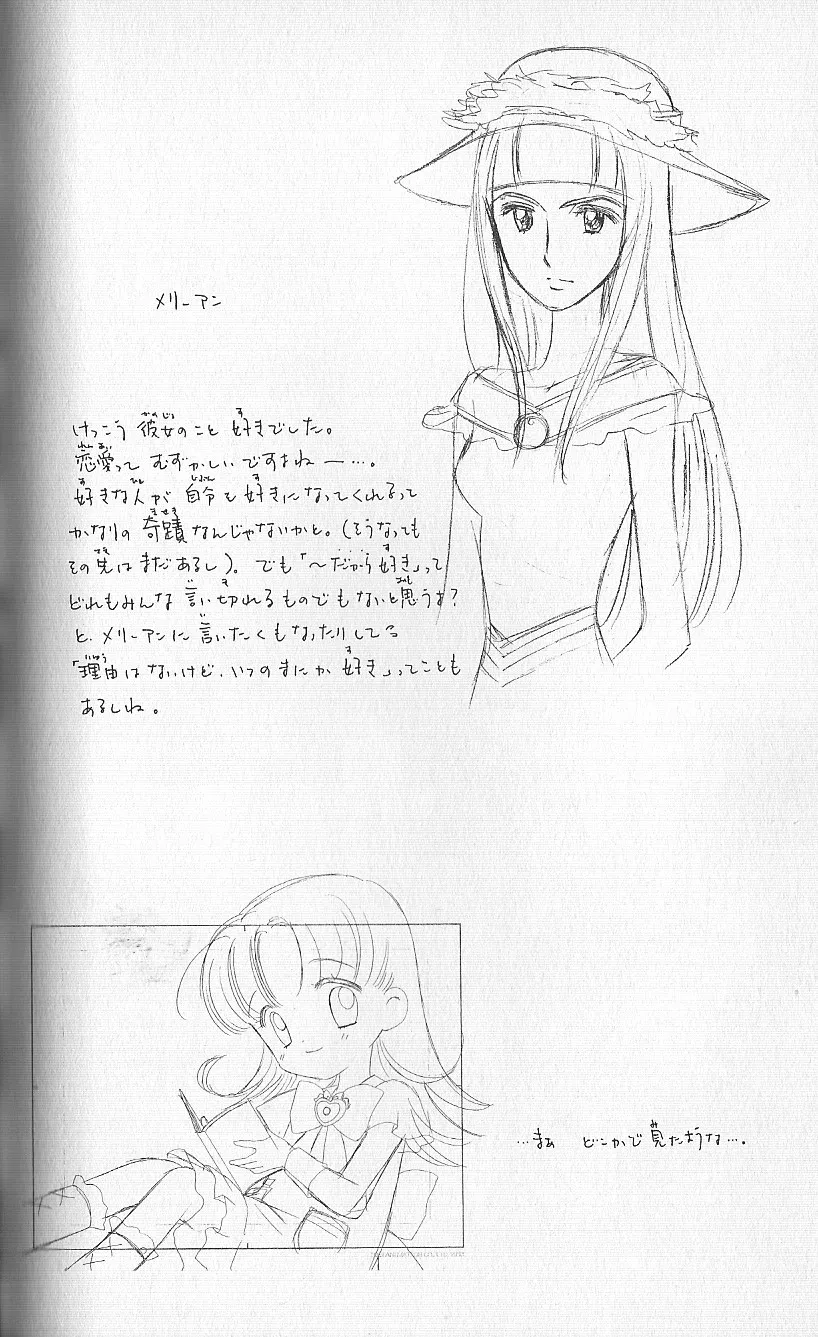 メリーアン
けっこう 彼女のこと 好きでした。
恋愛って むずかしいですよねー…。
好きな人が 自分を好きになってくれるって
かなりの奇蹟なんじゃないかと。(そうなっても
その先はまだあるし)。でも「～だから好き」って
どれもみんな 言い切れるものでもないと思うよ?
と、メリーアンに言いたくもなったりしてる
「理由はないけど、いつのまにか 好き」ってことも
あるしね。
…まぁ どこかで見たような…。